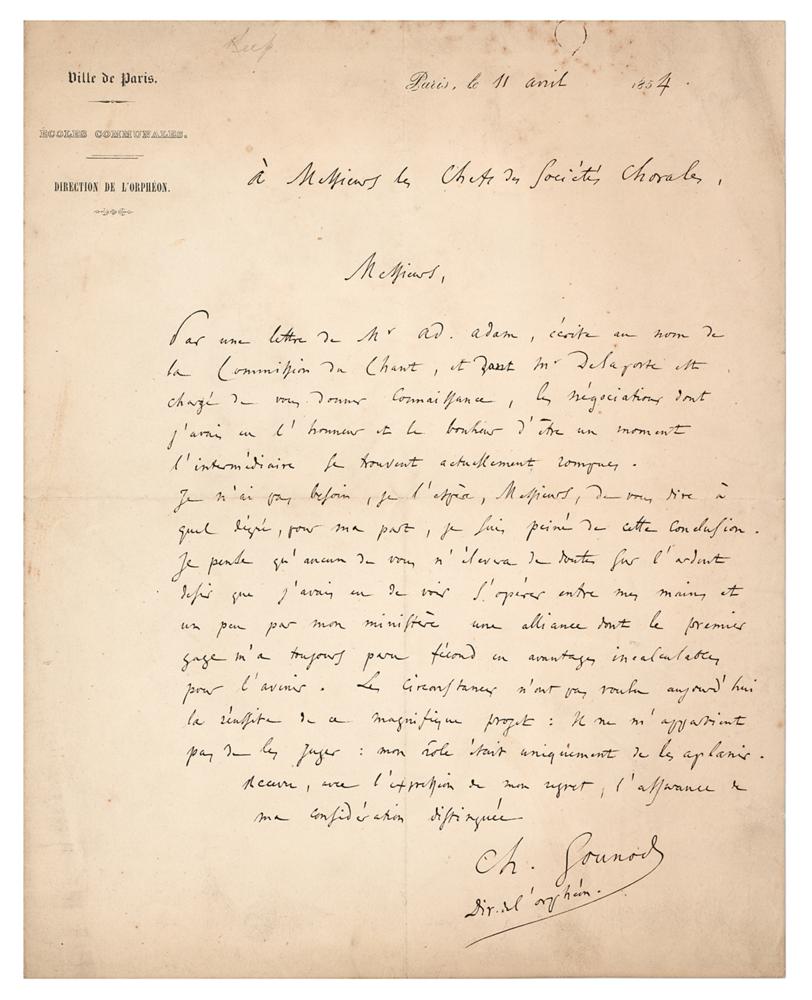 Ville de Paris.
ÉCOLES COMMUNALES.
DIRECTION DE L'ORPHÉON.
Paris, le 11 avril 1854.
à Messieurs les Chefs des Sociétés Chorales,
Messieurs,
Par une lettre de Mr Ad. Adam, écrite au nom de
la Commission du Chant, et dont Mr Delaporte est
chargé de vous donner connaissance, les négociations dont
j'avais eu l'honneur et le bonheur d'être un moment
l'intermédiaire se trouvent actuellement rompues.
Je n'ai pas besoin, je l'espère, Messieurs, de vous dire à
quel dégré, pour ma part, je suis peiné de cette conclusion.
Je pense qu'aucun de vous n'élevera de doutes sur l'ardent
desir que j'avais eu de voir s'opérer entre mes mains et
un peu par mon ministère une alliance dont le premier
gage m'a toujours paru fécond en avantages incalculables
pour l'avenir. Les circonstances n'ont pas voulu aujourd'hui
la réussite de ce magnifique projet : Il ne m'appartient
pas de les juger : mon rôle était uniquement de les aplanir.
Recevez, avec l'expression de mon regret, l'assurance de
ma considération distinguée
Ch. Gounod
Dir. de l'orphéon.